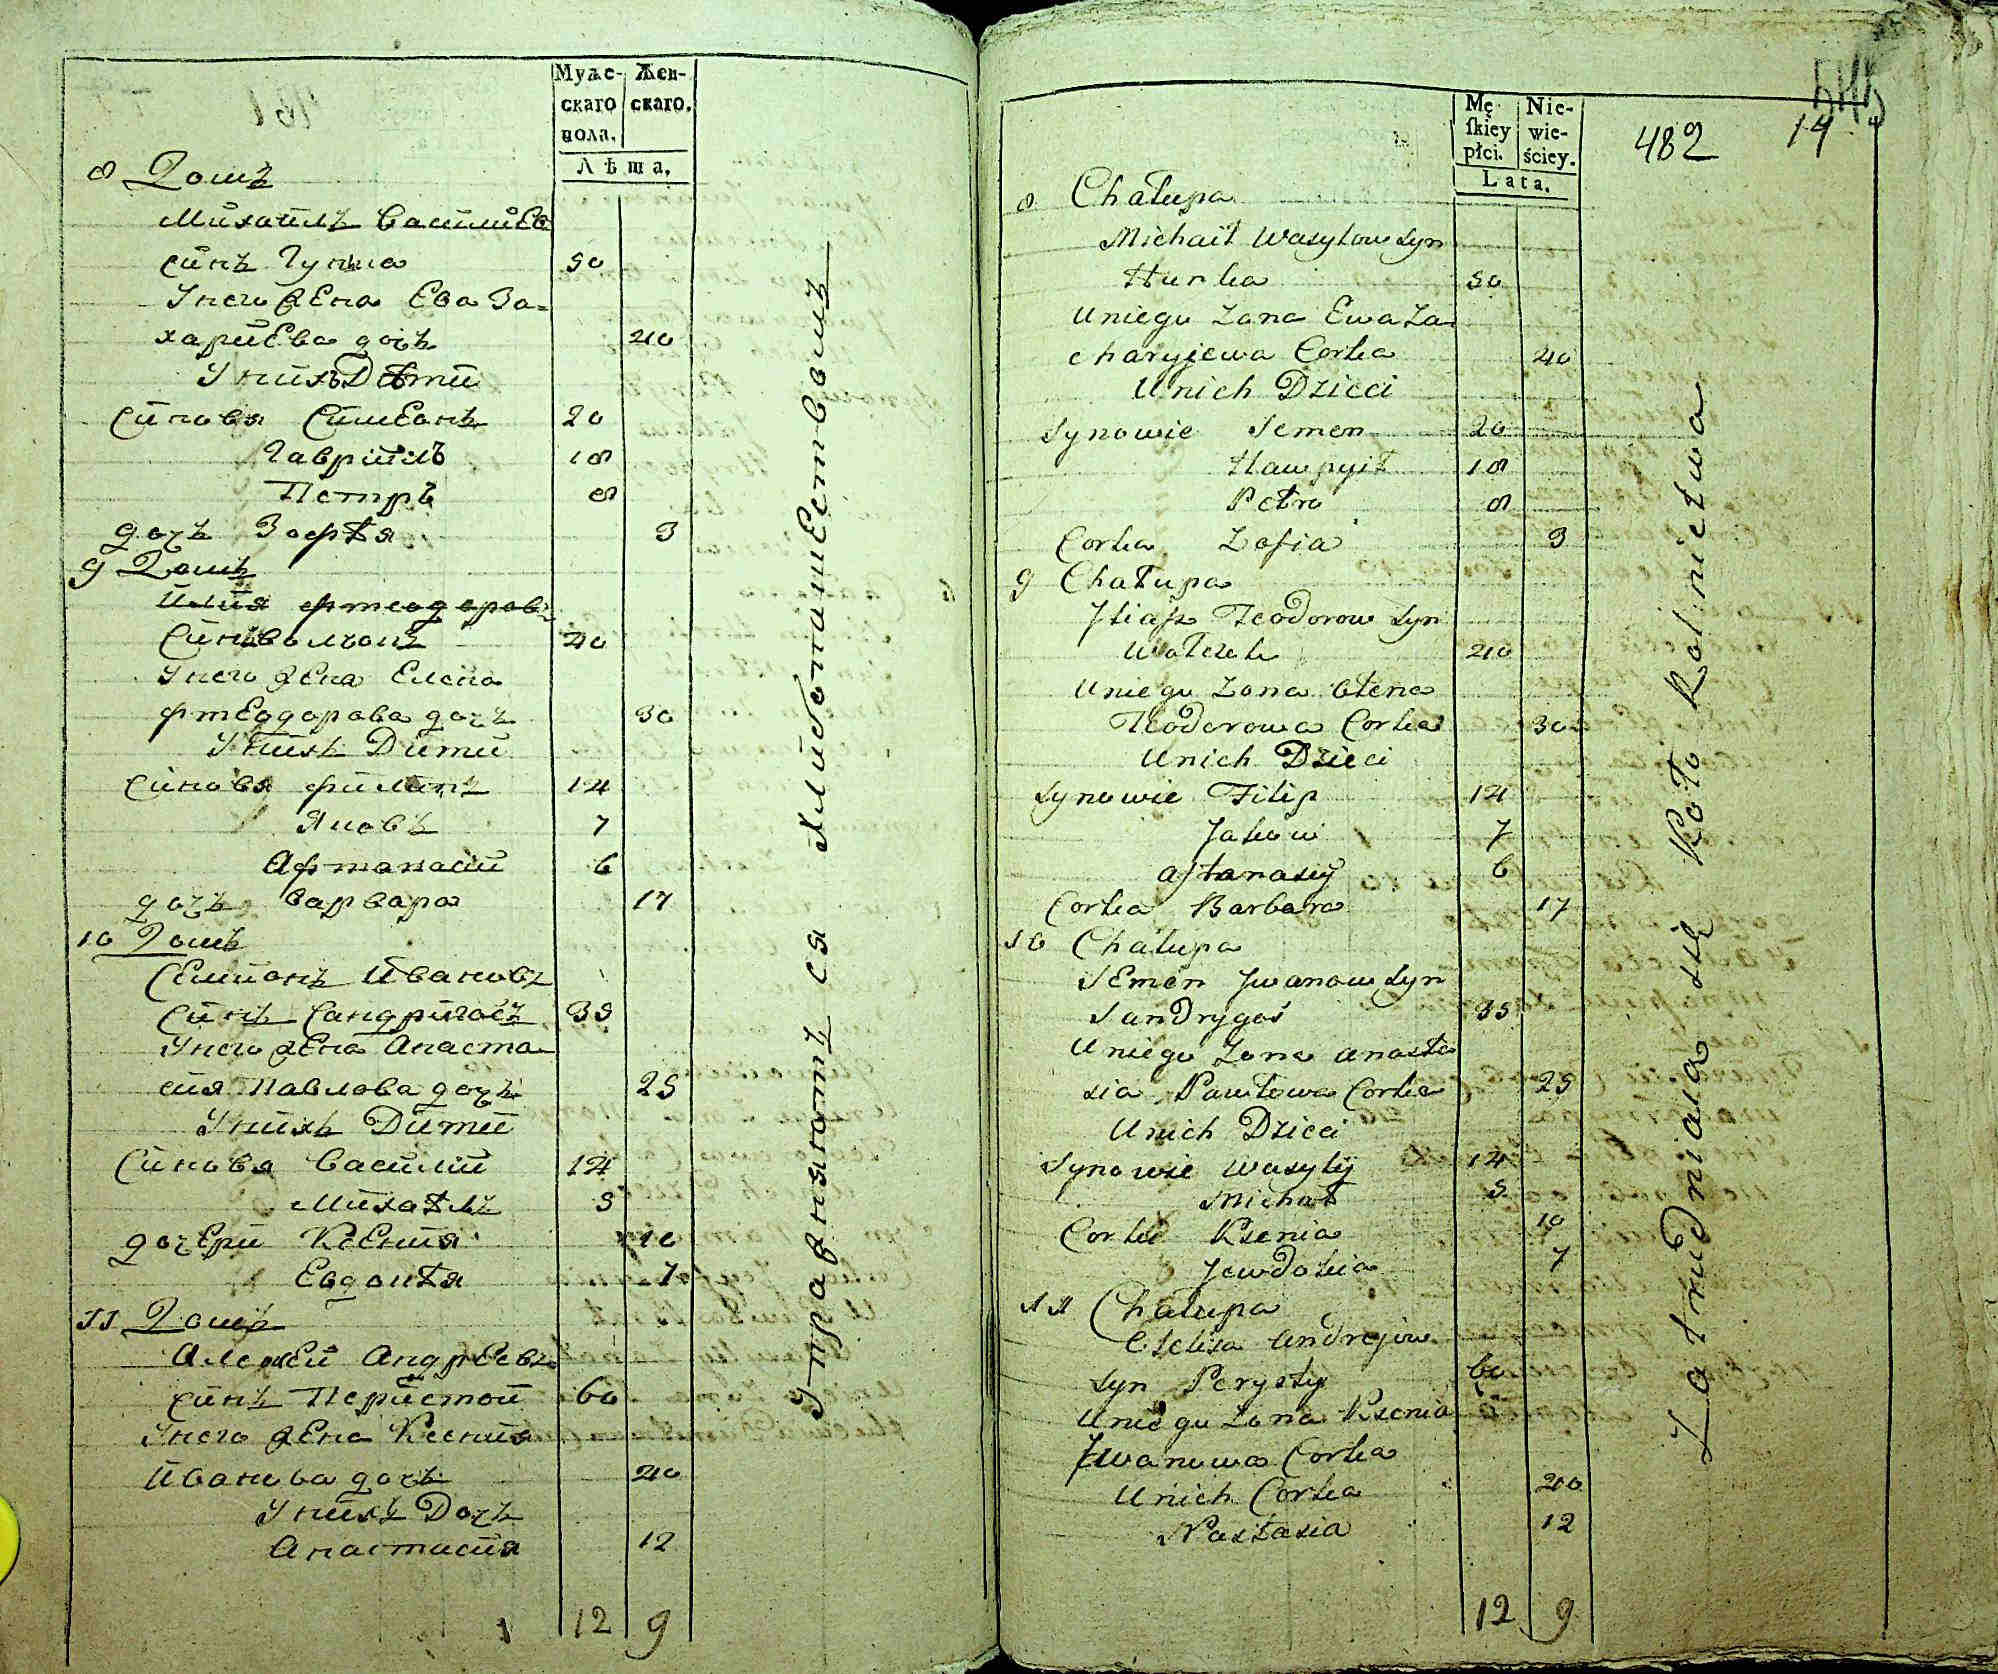 Мужескаго пола.
Женскаго.
Лѣта.
8 Домъ
Михаилъ Василиев
синъ Гурка 50
Унего жена Ева За=
хариева дочь 40
Унихъ Дѣти
Синовя Симеонъ 20
Гавриилъ 18
Петръ 8
дочь Зофѣя 3
9 Домъ
Илия Фтеодоровъ
Синъ Волчокъ 40
Унего жена Елена
Фтеодорова дочь 30
Унихъ Дити
Синовя Филипъ 14
Яковъ 7
Афтанасии 6
дочь Варвара 17
10 Домъ
Семионъ Ивановъ
Синъ Сандригосъ 35
Унего жена Анаста
сия Павлова дочь 25
Унихъ Дити
Синовя Василии 14
Михаѣлъ 5
дочери Ксения 10
Евдокѣя 7
11 Домъ
Алексеи Андреевъ
синъ Перистои 60
Унего жена Ксения
Иванова дочь 40
Унихъ Дочь
Анастасия 12
12 9
Упражняютъ ся хлиботашеством
482 14
Męſkiey płci.
Niewieściey.
Lata.
8 Chałupa
Michaił Wasylow Syn
Hurka 50
Uniego Zona Ewa Za
charyjewa Corka 40
Unich Dzieci
Synowie Semen 20
Hawryił 18
Petro 8
Corka Zofia 3
9 Chałupa
Jliasz Teodorow Syn
Wołczok 40
Uniego Zona Ołena
Teodorowa Corka 30
Unich Dzieci
Synowie Filip 14
Jakow 7
Aftanasiy 6
Corka Barbara 17
10 Chałupa
Semen Jwanow Syn
Sandrygoś 35
Uniego Zona Anasta
sia Pawłowa Corka 25
Unich Dzieci
Synowie Wasyly 14
Michał 5
Corki Ksenia 10
Jewdokia 7
11 Chałupa
Ołeksa Andrejow
Syn Perysty 60
Uniego Zona Ksenia
Jwanowa Corka
Unich Corka 40
Nastasia 12
12 9
Zatrudniaią się Koło Rolnictwa